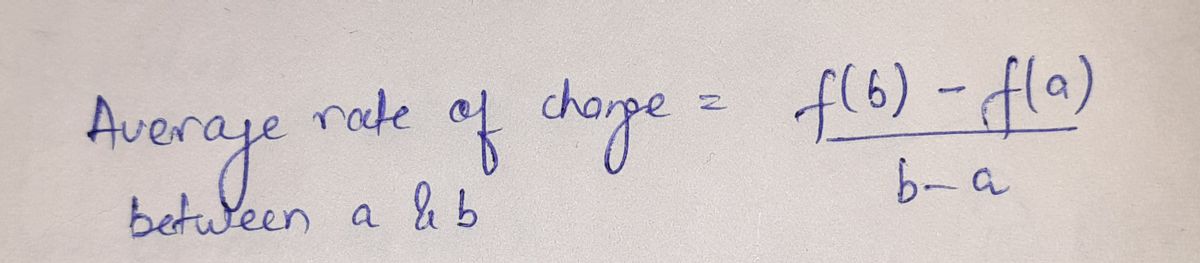 Average rate of change = f(b) - f(a)
between a & b b-a